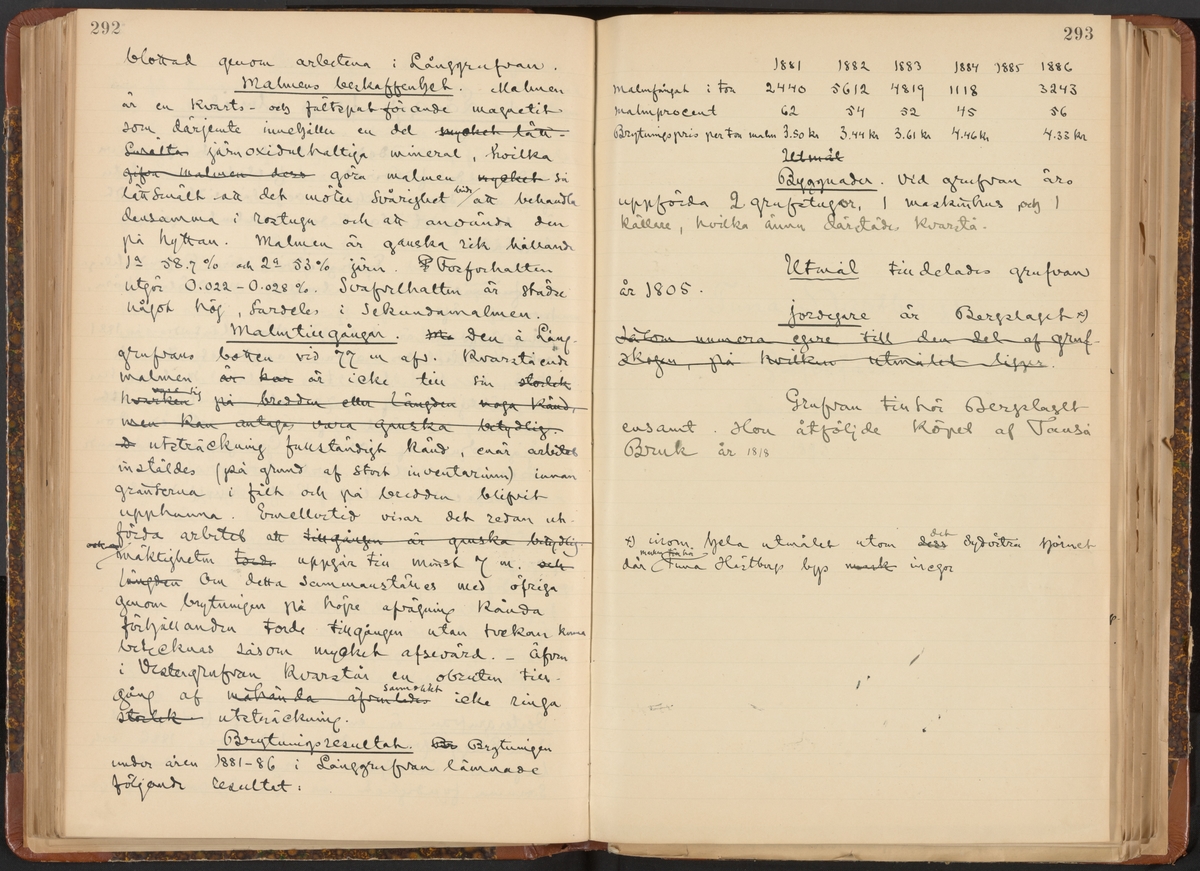 292
blottad genom arbetena i Långgrufvan.
Malmens beskaffenhet. Malmen
är en kvarts- och fältspatförande magnetit
som därjemte innehåller en del mycket lätt-
smälta järnoxidulhaltiga mineral, hvilka
gifva malmen dess göra malmen mycket så
lättsmält att det möter svårighet både att behandla
densamma i rostugn och att använda den
på hyttan. Malmen är ganska rik hållande
1a 58.7% och 2a 53% järn. Fosforhalten
utgör 0.022–0.028%. Svafvelhalten är städse
något hög, särdeles i sekundamalmen.
Malmtillgångar. Den å Lång-
grufvans botten vid 77 m afv. kvarstående
malmen är kar är icke till sin storlek
hvarken på bredden eller längden noga känd,
men kan antagas vara ganska betydlig.
utsträckning fullständigt känd, enär arbetet
inställdes (på grund af stort inventarium) innan
gränserna i fält och på bredden blifvit
upphunna. Emellertid visar det redan ut-
förda arbetet att tillgången är ganska betydlig
mäktigheten torde uppgår till minst 7 m. och
längden Om detta sammanställes med öfriga
genom brytningen på högre afvägning kända
förhållanden torde tillgången utan tvekan kunna
betecknas såsom mycket afsevärd. – Äfven
i Vestergrufvan kvarstår en obruten till-
gång af måhända äfvenledes sannolikt icke ringa
storlek utsträckning.
Brytningsresultat. Br Brytningen
under åren 1881–86 i Långgrufvan lämnade
följande resultat:
293
1881 1882 1883 1884 1885 1886
Malmfånget i ton 2440 5612 4819 1118 3243
Malmprocent 62 54 52 45 56
Brytningspris per ton malm 3.50 kr 3.44 kr 3.61 kr 4.46 kr 4.33 kr
Utmål
Byggnader. Vid grufvan äro
uppförda 2 grufstugor, 1 maskinhus och 1
källare, hvilka ännu därstädes kvarstå.
Utmål tilldelades grufvan
år 1805.
Jordegare är Bergslaget x)
såsom numera egare till den del af gruf-
skogen, på hvilken utmålet ligger.
Grufvan tillhör Bergslaget
ensamt. Hon åtföljde köpet af Tanså
Bruk år 1818
x) inom hela utmålet utom dess det sydöstra hörnet
där Tuna Hästbergs bys mark ingår